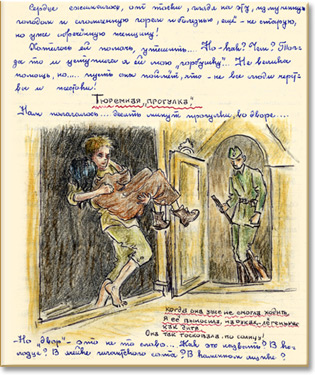 Сердце сжималось, от тоски, глядя на эту, измученную
голодом и сломленную горем и болезнью, ещё - не старую,
но уже обречённую женщину!
Хотелось ей помочь, утешить... Но - как? Чем? Разве
за то и уступила я ей мою „горбушку". Не велика
помощь, но... пусть она поймёт, что - не все люди
и
Тюремная „прогулка"
Нам полагалось... десять минут прогулки, во дворе....
когда она уже не смогла ходить,
я её выносила, на руках - лёгенькая
как дитя.
Она так тосковала по солнцу!
- Но „двор" - это не то слово... Как это назвать? В ко-
лодце? В мешке гигантского
? В каменном мешке?